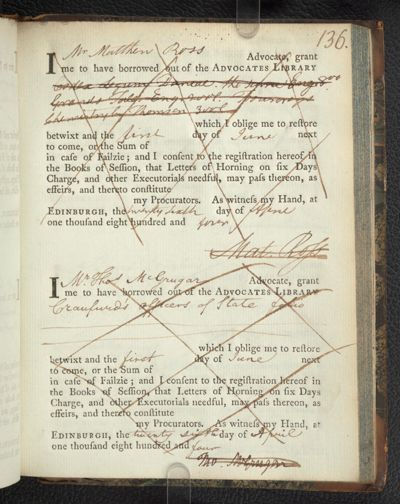 136.
I Mr Matthew Ross Advocate, grant
me to have borrowed out of the ADVOCATES LIBRARY
which I oblige me to reſtore
betwixt and the first day of June next
to come, or the Sum of
in caſe of Failzie; and I conſent to the regiſtration hereof in
the Books of Seſſion, that Letters of Horning on ſix Days
Charge, and other Executorials needful, may paſs thereon, as
effeirs, and thereto conſtitute
my Procurators. As witneſs my Hand, at
EDINBURGH, the twenty sixth day of
one thouſand eight hundred and four
Mat. Ross
I Mr Thos McGrugar Advocate, grant
me to have borrowed out of the ADVOCATES LIBRARY
Craufurd's officers of State folio
which I oblige me to reſtore
betwixt and the first day of June next
to come, or the Sum of
in caſe of Failzie; and I conſent to the regiſtration hereof in
the Books of Seſſion, that Letters of Horning on ſix Days
Charge, and other Executorials needful, may paſs thereon, as
effeirs, and thereto conſtitute
my Procurators. As witneſs my Hand, at
EDINBURGH, the twenty sixth day of April
one thouſand eight hundred and four
Tho. McGrugar